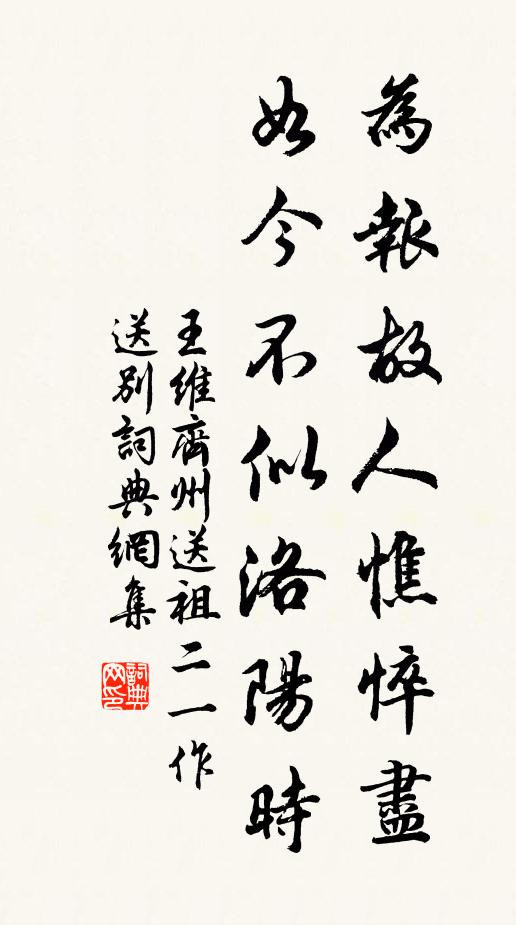 為報故人憔悴盡
如今不似洛陽時
王維齊州送祖二一作
送別詞典網集
詞典网印